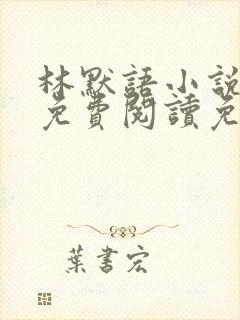 林默語小說
免費閱讀免
葉書宏